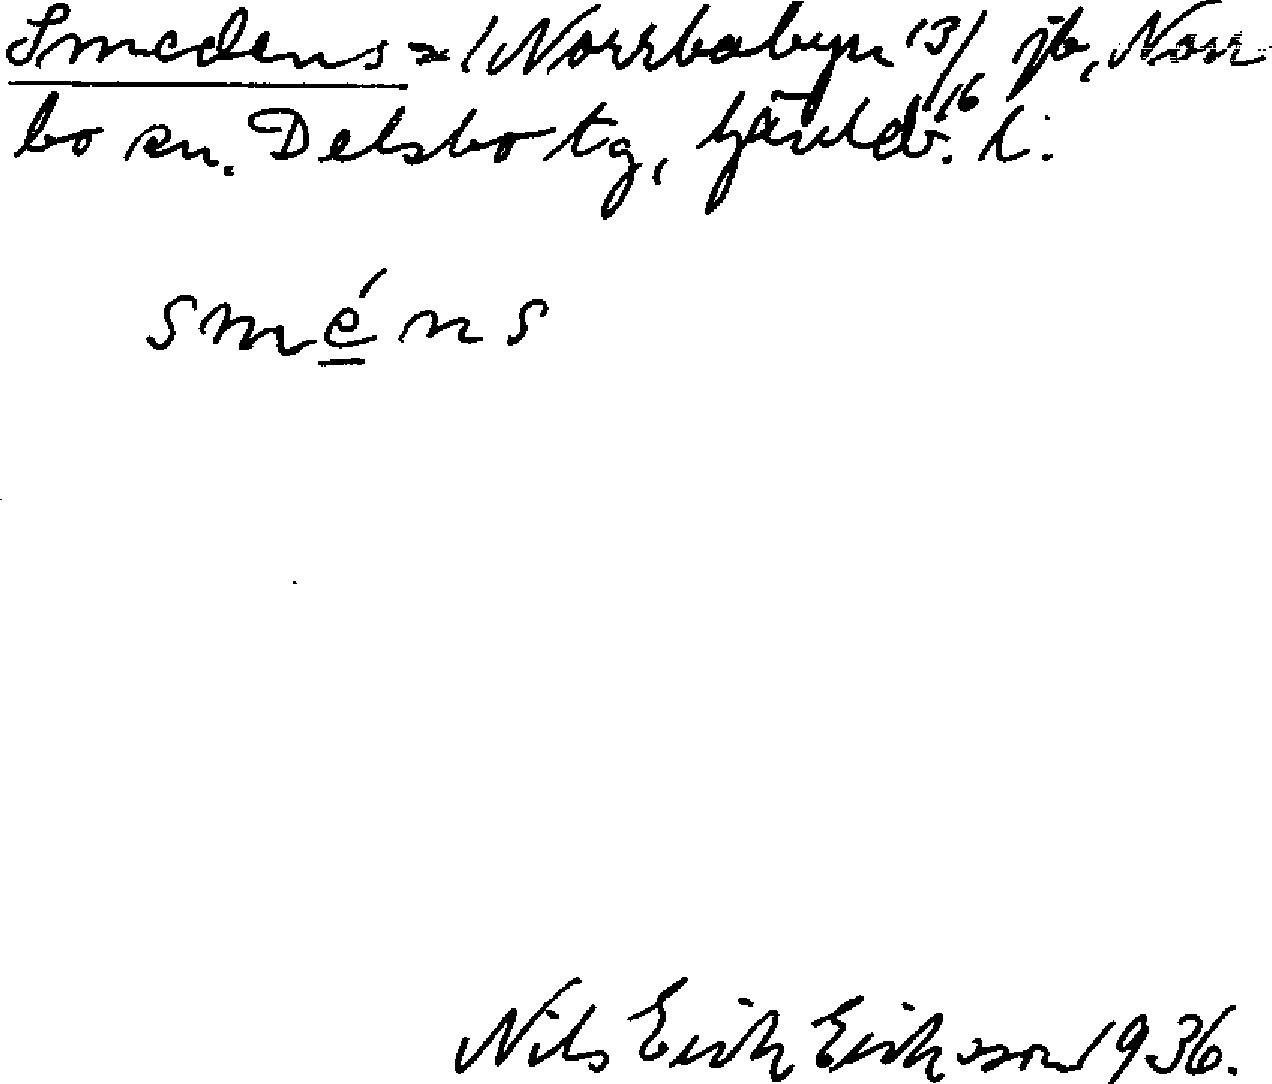 Smedens = (Norrbobyn 13/16 jb, Norr
bo sn. Delsbo tg, Gävleb. l.
sméns
Nils Erik Eriksson 1936.